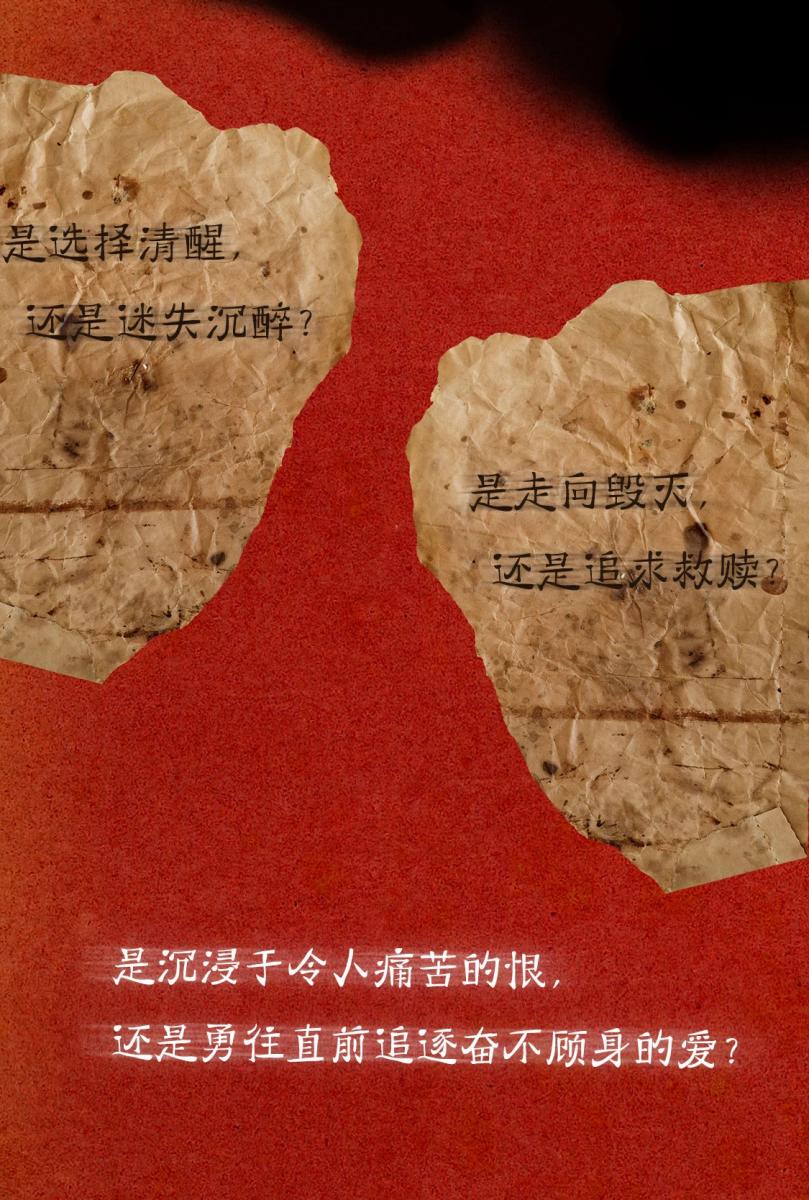 是选择清醒，
还是迷失沉醉？
是走向毁灭，
还是追求救赎？
是沉浸于令人痛苦的恨，
还是勇往直前追逐奋不顾身的爱？